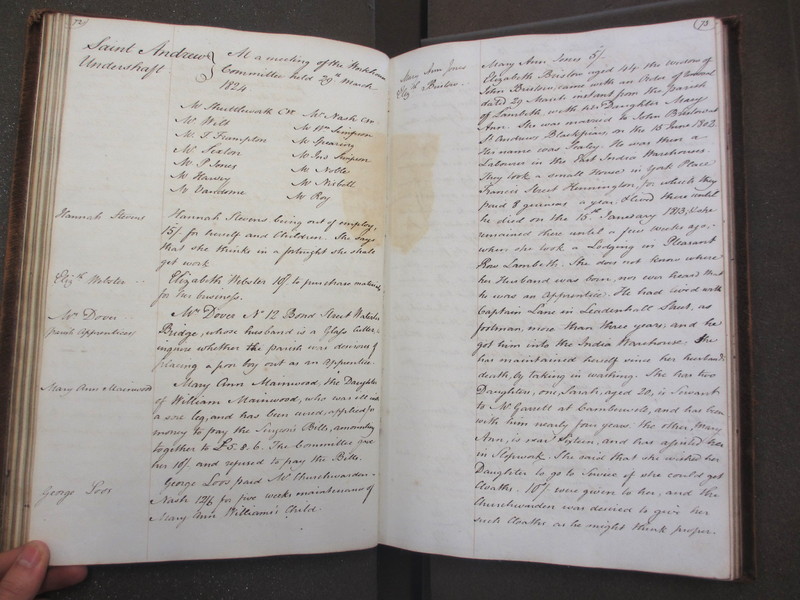 72
Saint Andrew
Undershaft
At a meeting of the Workhouse
Committee held 29th March
1824
Mr Shuttleworth CW Mr Nash CW
Mr Witt Mr Wm Simpson
Mr T Frampton Mr Spearing
Mr Sexton Mr Jas Simpson
Mr P Jones Mr Noble
Mr Harvey Mr Nisbett
Mr Vandome Mr Roy
Hannah Stevens
Hannah Stevens being out of employ,
15/ for herself and Children. She says
that she thinks in a fortnight she shall
get work
Elizth Webster
Elizabeth Webster 10/ to purchase materials
for her business.
Mrs Dover
Parish Apprentices
Mrs Dover No 12 Bond Street Waterloo
Bridge, whose husband is a Glass Cutter
inquire whether the parish was desirous of
placing a poor boy out as an apprentice.
Mary Ann Mainwood
Mary Ann Mainwood, the Daughter
of William Mainwood, who was ill with
a sore leg, and has been cured, applied for
money to pay the Surgeon's Bills, amounting
together to £5.8.6. The Committee gave
her 10/. and refused to pay the Bills.
George Loos
George Loos, paid Mr Churchwarden
Nash 12/6 for five weeks maintenance of
Mary Ann Williams's Child.
73
Mary Ann Jones
Elizth Bristow
Mary Ann Jones 5/.
Elizabeth Bristow aged 44 the widow of
John Bristow, came with an Order of Removal
dated 29 March instant from the parish
of Lambeth, with her Daughter Mary
Ann. She was married to John Bristow at
St Andrews Blackfriars, on the 13 June 1802.
Her name was He was then a
Labourer in the East India Warehouses.
They took a small House in York Place
Francis Street Kennington, for which they
paid 8 guineas a year, & lived there until
he died on the 15th January 1813, & she
remained there until a few weeks ago,
when she took a Lodging in Pleasant
Row Lambeth. She does not know where
her Husband was born, nor ever heard that
he was an Apprentice. He had lived with
Captain Lane in Leadenhall Street, as
footman, more than three years, and he
got him into the India Warehouse. She
has maintained herself since her husband's
death, by taking in washing. She has two
Daughters, one, Sarah, aged 20, is Servant
to Mr Garrett at Camberwell, and has been
with him nearly four years, the other, Mary
Ann, is near Sixteen, and has assisted her
in Slopwork. She said that she wished her
Daughter to go to Service if she could get
Cloaths. 10/ were given to her, and the
Churchwarden was desired to give her
such Cloaths as he might think proper.